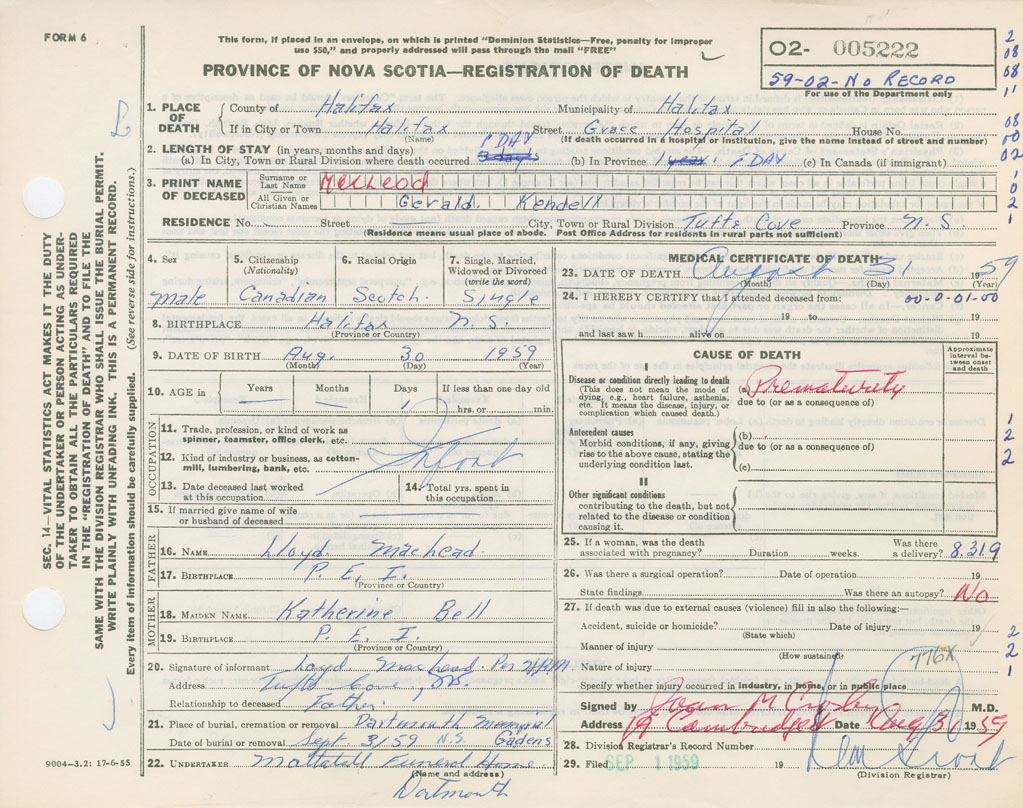 FORM 6
This form, if placed in an envelope, on which is printed "Dominion Statistics—Free, penalty for improper
use $50," and properly addressed will pass through the mail "FREE"
PROVINCE OF NOVA SCOTIA—REGISTRATION OF DEATH
O2- 005222
59-02-No RECORD
For use of the Department only
2
08
08
11
08
00
02
1
0
2
1
1
2
2
2
2
1
SEC. 14—VITAL STATISTICS ACT MAKES IT THE DUTY
OF THE UNDERTAKER OR PERSON ACTING AS UNDER-
TAKER TO OBTAIN ALL THE PARTICULARS REQUIRED
IN THE "REGISTRATION OF DEATH" AND TO FILE THE
SAME WITH THE DIVISION REGISTRAR WHO SHALL ISSUE THE BURIAL PERMIT.
WRITE PLAINLY WITH UNFADING INK. THIS IS A PERMANENT RECORD.
Every item of information should be carefully supplied. (See reverse side for instructions.)
1. PLACE OF DEATH
County of Halifax Municipality of Halifax
If in City or Town Halifax Street Grace Hospital House No.
(Name) (If death occurred in a hospital or institution, give the name instead of street and number)
2. LENGTH OF STAY (in years, months and days)
(a) In City, Town or Rural Division where death occurred 3 days 1 DAY (b) In Province 1 year. 1 DAY (c) In Canada (if immigrant)
3. PRINT NAME OF DECEASED
Surname or Last Name McLeod
All Given or Christian Names Gerald. Kendell
RESIDENCE No. Street City, Town or Rural Division Tufts Cove Province N.S.
(Residence means usual place of abode. Post Office Address for residents in rural parts not sufficient)
4. Sex
Male
5. Citizenship
(Nationality)
Canadian
6. Racial Origin
Scotch.
7. Single, Married, Widowed or Divorced
(write the word)
Single
8. BIRTHPLACE Halifax N.S.
(Province or Country)
9. DATE OF BIRTH Aug. 30 1959
(Month) (Day) (Year)
10. AGE in Years Months Days If less than one day old
1 hrs. or min.
OCCUPATION
11. Trade, profession, or kind of work as
spinner, teamster, office clerk, etc.
12. Kind of industry or business, as cotton-
mill, lumbering, bank, etc.
Infant
13. Date deceased last worked
at this occupation
14. Total yrs. spent in
this occupation
15. If married give name of wife
or husband of deceased
FATHER
16. NAME Lloyd Machead.
17. BIRTHPLACE P.E.I.
(Province or Country)
MOTHER
18. MAIDEN NAME Katherine Bell
19. BIRTHPLACE P.E.I.
(Province or Country)
20. Signature of informant Loyd. Machead. Per
Address Tufts Cove, NS.
Relationship to deceased Father
21. Place of burial, cremation or removal Dartmouth Memorial
Date of burial or removal Sept 3/59 N.S. Gadens
22. UNDERTAKER Mattatall Funeral Home.
(Name and address)
Dartmouth
9004—3.2: 17-6-55
MEDICAL CERTIFICATE OF DEATH
23. DATE OF DEATH August 31 1959
(Month) (Day) (Year)
24. I HEREBY CERTIFY that I attended deceased from: 00-0-01-00
19 to 19
and last saw h alive on 19
CAUSE OF DEATH
Approximate interval between onset and death
I
Disease or condition directly leading to death
(This does not mean the mode of
dying, e.g., heart failure, asthenia,
etc. It means the disease, injury, or
complication which caused death.)
(a) Prematurety
due to (or as a consequence of)
Antecedent causes
Morbid conditions, if any, giving
rise to the above cause, stating the
underlying condition last.
(b)
due to (or as a consequence of)
(c)
II
Other significant conditions
contributing to the death, but not
related to the disease or condition
causing it.
25. If a woman, was the death Was there
associated with pregnancy? Duration weeks. a delivery? 8.319
26. Was there a surgical operation? Date of operation 19
State findings Was there an autopsy? No
27. If death was due to external causes (violence) fill in also the following:—
Accident, suicide or homicide? Date of injury 19
(State which)
Manner of injury
(How sustained)
776X
Nature of injury
Specify whether injury occurred in industry, in home, or in public place
Signed by Joan M Crosby M.D.
Address 19 Cambridge Date Aug 31 1959
28. Division Registrar's Record Number
29. Filed SEP 1 1959 19
(Division Registrar)